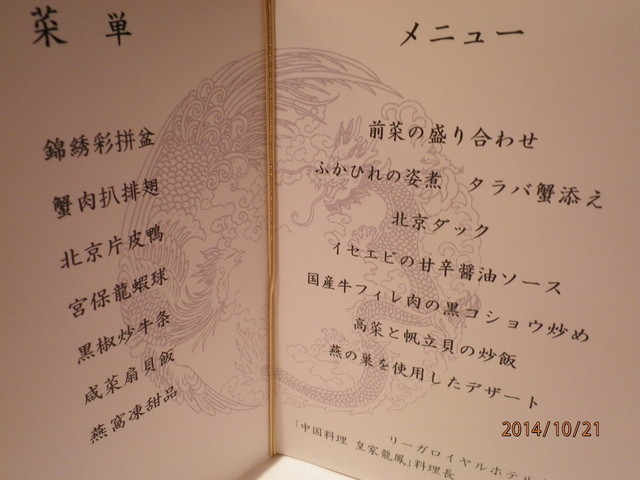 菜単
錦綉彩拼盆
蟹肉扒排翅
北京片皮鴨
宮保龍蝦球
黒椒炒牛条
咸菜扇貝飯
燕窩凍甜品
メニュー
前菜の盛り合わせ
ふかひれの姿煮 タラバ蟹添え
北京ダック
イセエビの甘辛醤油ソース
国産牛フィレ肉の黒コショウ炒め
高菜と帆立貝の炒飯
燕の巣を使用したデザート
リーガロイヤルホテル
「中国料理 皇家龍鳳」料理長
2014/10/21